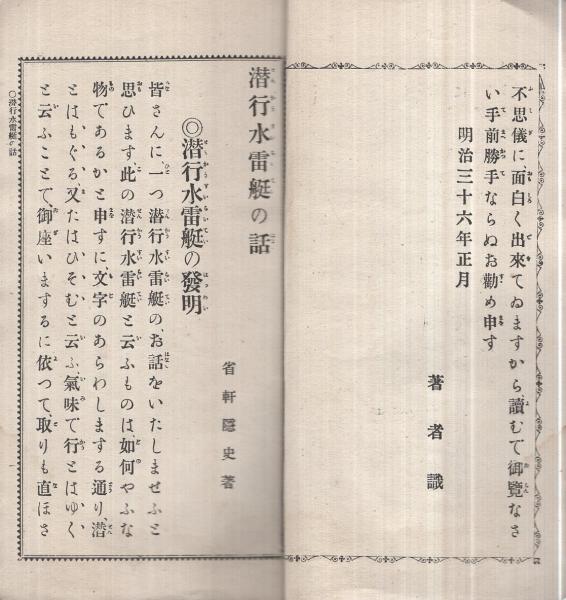 不思儀に、面白く出來てゐますから、讀むで御覽なさ
い手前勝手ならぬお勸め申す
明治三十六年正月
著者識
潜行水雷艇の話
省軒隱史著
◎潜行水雷艇の發明
皆さんに、一つ潜行水雷艇の、お話をいたしませふと
思ひます、此の潜行水雷艇と云ふものは、如何やふな
物であるかと申すに、文字のあらわしまする通り、潜
とはもぐる、又たはひそむと云ふ、氣味で行とはゆく
と云ふことで、御座いまするに依つて、取りも直ほさ
○潜行水雷艇の話
一